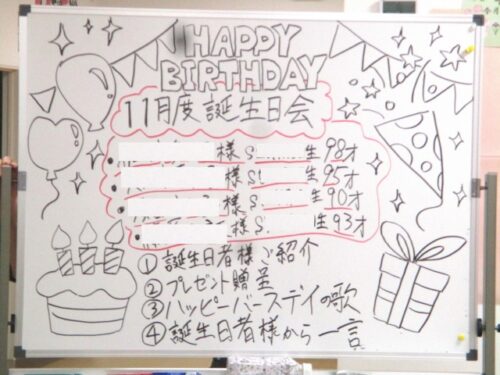 HAPPY
BIRTHDAY
11月度 誕生日会
• 様 S. 生 98才
• 様 S. 生 95才
• 様 S. 生 90才
• 様 S. 生 93才
① 誕生日者様ご紹介
② プレゼント贈呈
③ ハッピーバースデイの歌
④ 誕生日者様から一言